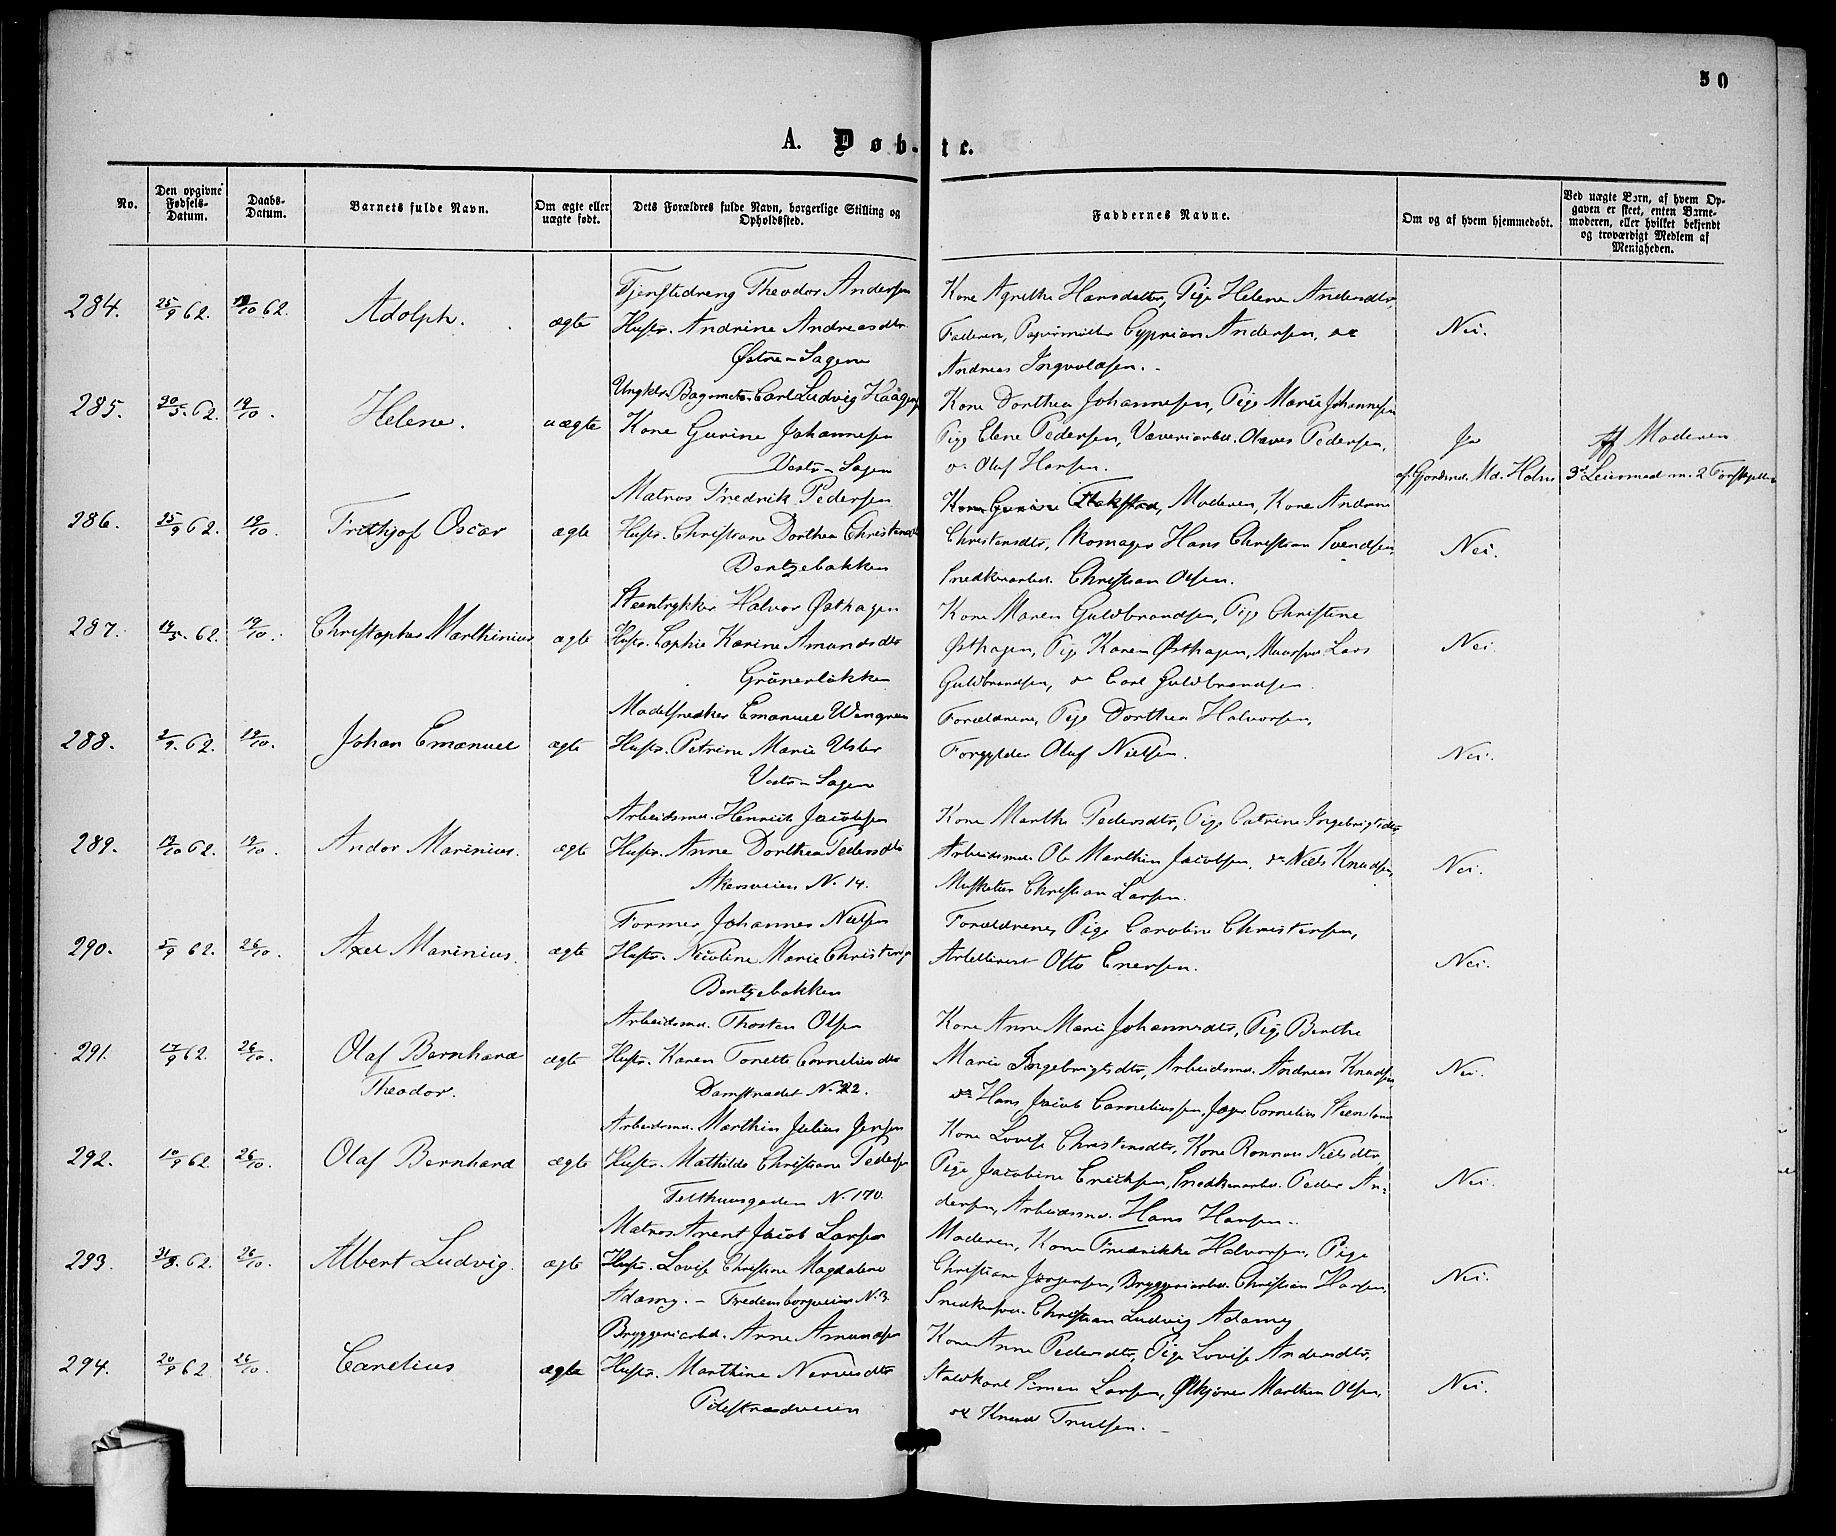 50
A. Døb-te.
No.
Den opgivne Fødsels-Datum.
Daabs-Datum.
Barnets fulde Navn.
Om ægte eller uægte født.
Dets Forældres fulde Navn, borgerlige Stilling og Opholdssted.
Faddernes Navne.
Om og af hvem hjemmedøbt.
Ved uægte Børn, af hvem Opgaven er skeet, enten Barnemoderen, eller hvilket bekjendt og troværdigt Medlem af Menigheden.
Tjenestedreng Theodor Andersen
Kone Agrethe Hansdatter, Pige Helene Andersdtr,
284. 25/9 62. 19/10 62. Adolph. ægte Hustr. Andrine Andreasdtr.
Faderen, Papirmøller Cyprian Andersen, og Nei.
Østre Sagene
Andreas Ingvoldsen.
Ungkr. Bagermstr. Carl Ludvig Kaagen
Kone Dorthea Johannesen, Pige Marie Johannesen
285. 20/5 62. 19/10. Helene. uægte Kone Gurine Johannesen
Pige Elene Pedersen, Væveriarbd. Olaves Pedersen, Ja Af Moderen
Vestre Sagen
og Oluf Hansen. af Gjordmd. Md. Holm 3d Leiermaal m. 2
Matros Fredrik Pedersen
Kone Gurine Flakstad, Moderen, Kone Andrine
286. 25/9 62. 19/10. Frithjof Oscar ægte Hustr. Christiane Dorthea Christensdtr
Christensdtr, Skomager Hans Christian Svendsen, Nei.
Bentzebakken
Snedkerarbd. Christian Olsen.
Steentrykker Halvor Østhagen
Kone Maren Guldbrandsen, Pige Christine
287. 14/5 62. 19/10. Christopher Marthinius ægte Hustr. Sophie Karine Amundsdtr
Østhagen, Pige Karen Østhagen, Muursvd. Lars Nei.
Grünerløkken
Guldbrandsen, og Carl Guldbrandsen.
Modelsnedker Emanuel Wengren
Forældrene, Pige Dorthea Halvorsen,
288. 2/9. 62. 19/10. Johan Emanuel ægte Hustr. Petrine Marie Usler
Forgylder Oluf Nielsen. Nei.
Vestre Sagen
Arbeidsmd. Henrich Jacobsen
Kone Marthe Pedersdtr, Pige Catrine Ingebrigtsdtr
289. 13/10 62. 19/10. Andor Marinius. ægte Hustr. Anne Dorthea Pedersdtr
Arbeidsmd. Ole Marthin Jacobsen, og Niels Knudsen, Nei.
Akersveien N. 14.
Musketeer Christian Larsen.
Former Johannes Nielsen
Forældrene, Pige Caroline Christensen,
290. 5/9 62. 26/10. Axel Marinius. ægte Hustr. Nicoline Marie Christensen
Artellerist Otto Enersen. Nei.
Bentzebakken
Arbeidsmd. Thosten Olsen
Kone Anne Marie Johannesdtr, Pige Berthe
291. 17/9 62. 26/10. Olaf Bernhard ægte Hustr. Karen Tonette Corneliusdtr
Marie Ingebrigtsdtr, Arbeidsmd. Andreas Knudsen, Nei.
Theodor. Damstrædet N. 22.
og Hans Jacob Corneliussen, Jæger Cornelius Steenland
Arbeidsmd. Marthin Julius Jensen
Kone Lovise Christensdtr, Kone Ronnau Nielsdtr
292. 10/9 62. 26/10. Olaf Bernhard ægte Hustr. Mathilde Christiane Pedersen
Pige Jacobine Erichsen, Snedkerarbd. Peder An- Nei.
Felthuusgaden N. 170.
dersen, Arbeidsmd. Hans Hansen.
Matros Arent Jacob Larsen
Moderen, Kone Fredrikke Halvorsen, Pige
293. 31/8. 62. 26/10. Albert Ludvig. ægte Hustr. Lovise Christine Magdalene
Christiane Jørgensen, Bryggeriarbd. Christian Hansen, Nei.
Adamy. - Fredensborgveien N. 3.
Snedkersvd. Christian Ludvig Adamy
Bryggeriarbd. Arne Amundsen
Kone Anne Pedersdtr, Pige Lovise Andersdtr,
294. 20/9 62. 26/10. Carelius ægte Hustr. Marthine Neriesdtr
Staldkarl Simen Larsen, Ølkjører Marthin Olsen, Nei.
Pilestrædveien
og Knud Trulsen.